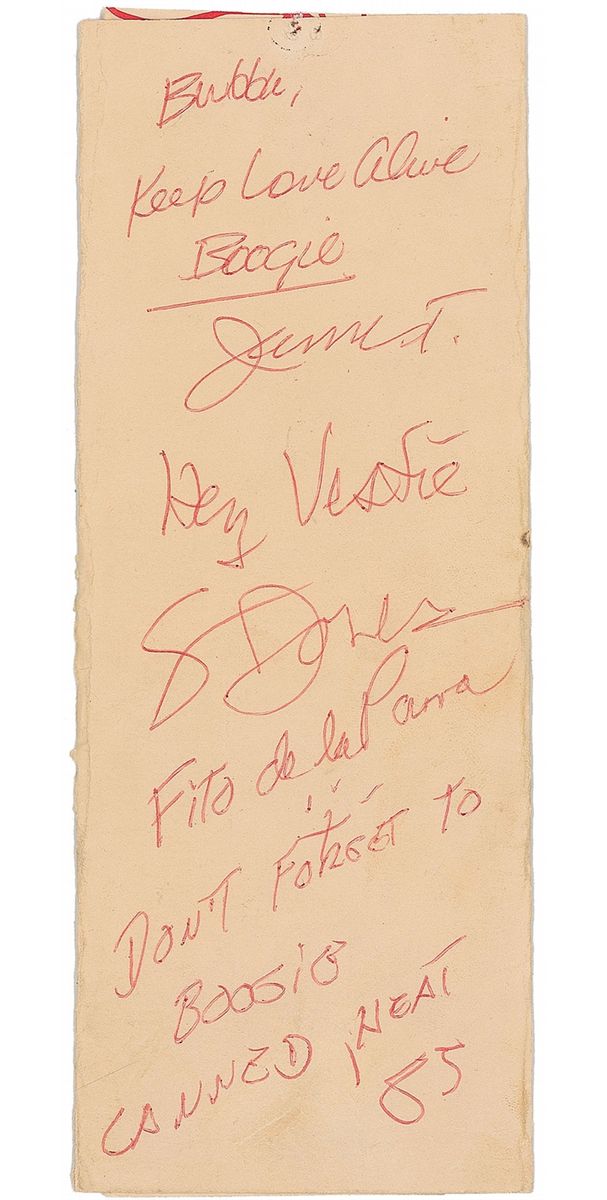 Bubba,
Keep Love Alive
Boogie
James T.
Hey
Fito de la Parra
DON'T FORGET TO
BOOGIE
CANNED HEAT
85